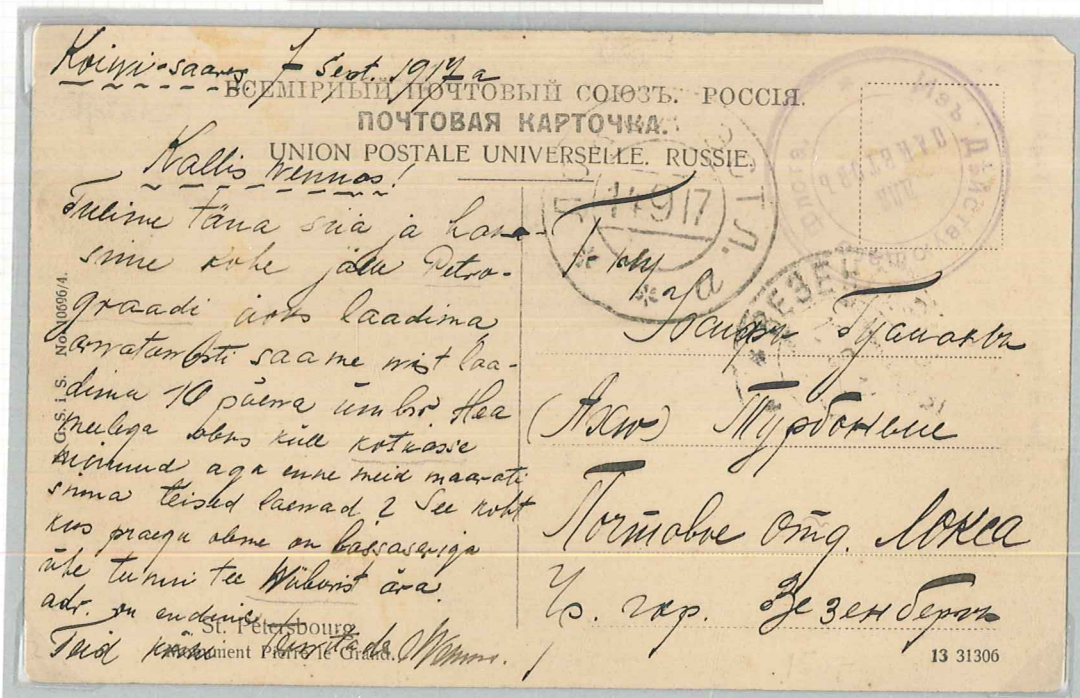 Koiwi-saares 7 Sept. 1917 a
ВСЕМІРНЫЙ ПОЧТОВЫЙ СОЮЗЪ. РОССІЯ.
ПОЧТОВАЯ КАРТОЧКА.
UNION POSTALE UNIVERSELLE. RUSSIE.
Kallis wennos!
Tulime täna siia ja haka-
sime kohe jälle Petro-
graadi laadima
arwatawasti saame wist laa-
dima 10 päewa ümber Hea
meelega oleks küll kotkasse
läinud aga enne meid määrati
sinna teised laewad 2 See koht
kus praegu oleme on
ühe tunni tee Wiiburist ära.
adr. on endine
Teid
St. Petersbourg
Monument Pierre le Grand.
G. S. i. S. No. 10696/4.
14 9 17
ВЕЗЕН
(Ахю) Турбонъме
Почтовое отд. Локса
Чр. гор. Везенбергъ
13 31306